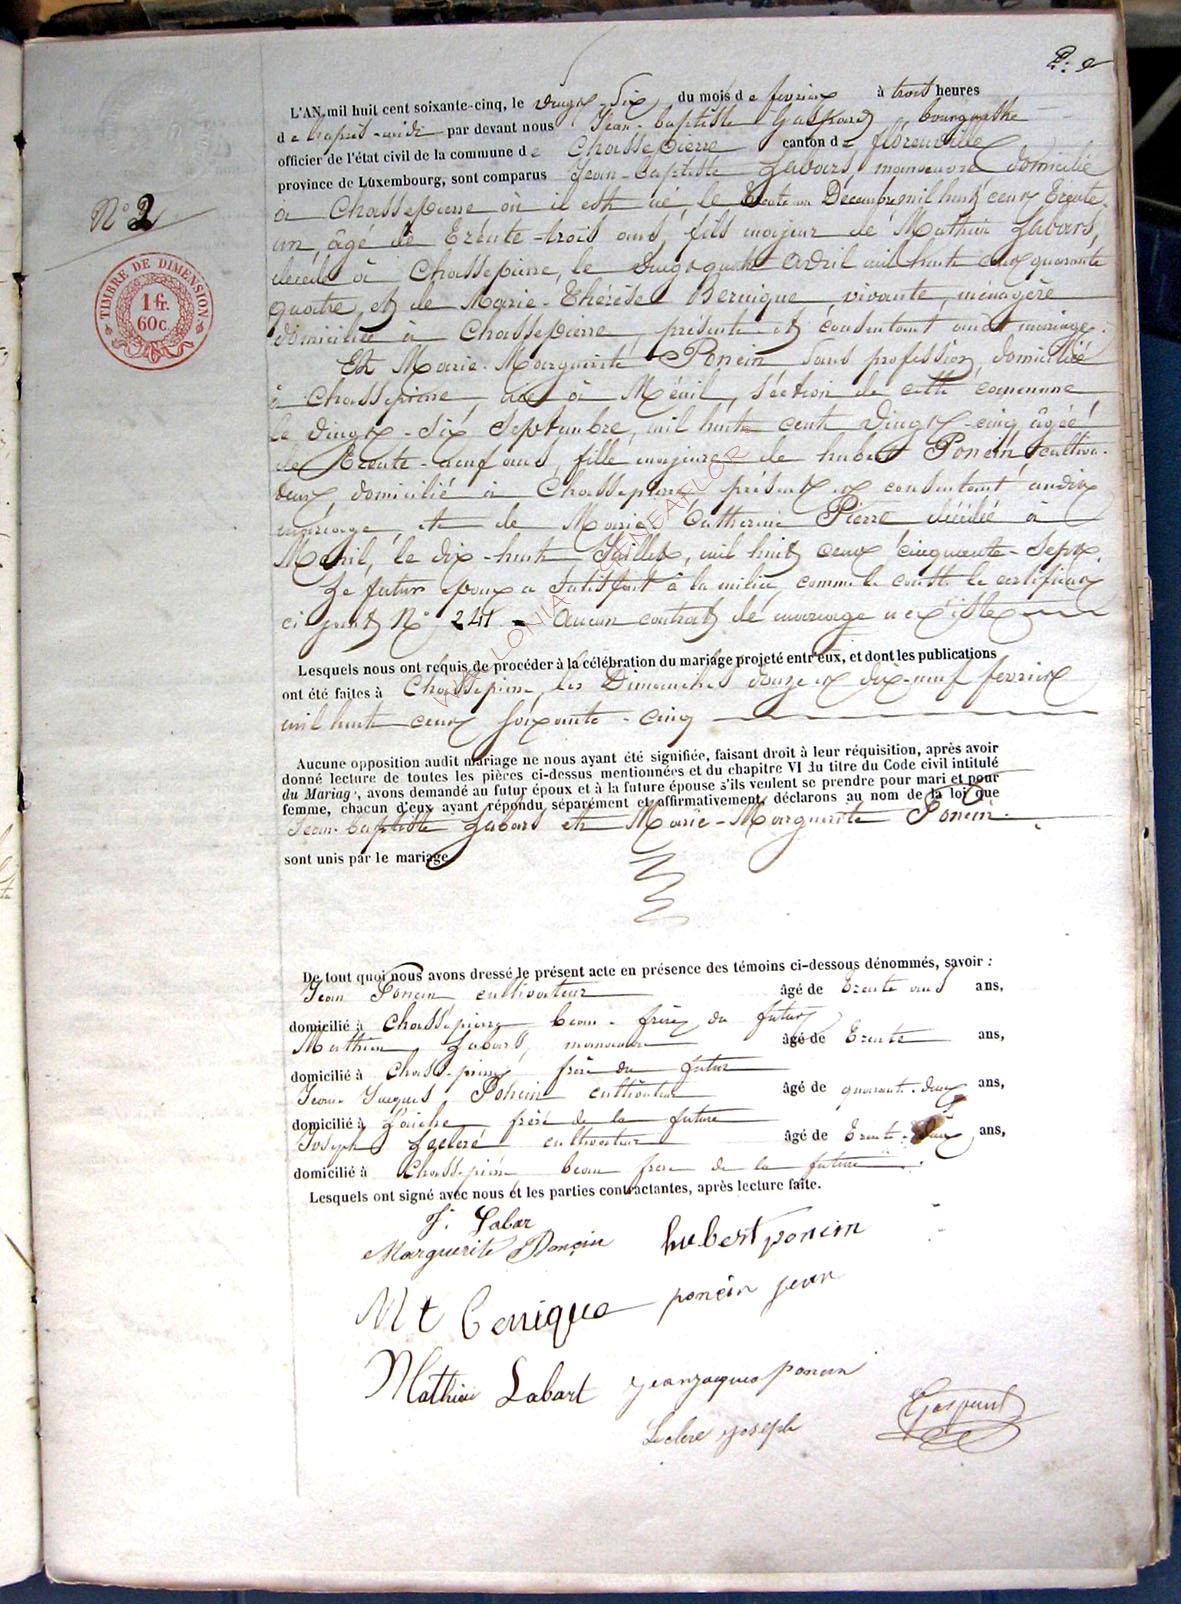 N° 2
TIMBRE DE DIMENSION
1 fr.
60c.
L'AN mil huit cent soixante-cinq, le vingt-six, du mois de fevrier à trois heures
de l'après-midi par devant nous Jean-baptiste Gaspard, bourgmestre
officier de l'état civil de la commune de Chassepierre canton de florenville
province de Luxembourg, sont comparus Jean-baptiste Labars, manoeuvre domicilié
à Chassepierre où il est né le trente un Decembre mil huit cent trente
un, âgé de trente-trois ans, fils majeur de Mathieu Labars,
décédé à Chassepierre, le vingt quatre avril mil huit cent quarante
quatre, et de Marie-thérèse Bernique, vivante, ménagère
domiciliée à Chassepierre, présente et consentant audit mariage.
Et Marie-Marguerite Poncin sans profession domiciliée
à Chassepierre, née à Ménil, séction de cette commune
le vingt-six septembre, mil huit cent vingt-cinq âgée
de trente-neuf ans, fille majeure de hubert Poncin cultiva-
teur domicilié à Chassepierre présent et consentant audit
mariage et de Marie Catherine Pierre décédée à
Ménil, le dix-huit Juillet, mil huit cent cinquante-sept.
Le futur époux a satisfait à la milice, comme le conste le certificat
ci joint N° 241 - aucun contrat de mariage n'existe
Lesquels nous ont requis de procéder à la célébration du mariage projeté entr'eux, et dont les publications
ont été faites à Chassepierre, les Dimanches douze et dix-neuf fevrier
mil huit cent soixante-cinq
Aucune opposition audit mariage ne nous ayant été signifiée, faisant droit à leur réquisition, après avoir
donné lecture de toutes les pièces ci-dessus mentionnées et du chapitre VI du titre du Code civil intitulé
du Mariag , avons demandé au futur époux et à la future épouse s'ils veulent se prendre pour mari et pour
femme, chacun d'eux ayant répondu séparément et affirmativement, déclarons au nom de la loi que
Jean-baptiste Labars et Marie-Marguerite Poncin.
sont unis par le mariage
De tout quoi nous avons dressé le présent acte en présence des témoins ci-dessous dénommés, savoir :
Jean Poncin cultivateur âgé de trente ans ans,
domicilié à Chassepierre beau-frère du futur
Mathieu Labars, manoeuvre âgé de trente ans,
domicilié à Chassepierre frère du futur
Jean-Jacques Poncin cultivateur âgé de quarante-deux ans,
domicilié à frère de la future
Joseph Lecleré cultivateur âgé de trente-deux ans,
domicilié à Chassepierre beau frère de la future
Lesquels ont signé avec nous et les parties contractantes, après lecture faite.
J. Labar
Marguerite Poncin hubert poncin
M t Bernique poncin jean
Mathieu Labart jeanjacques poncin
Leclere joseph Gaspard